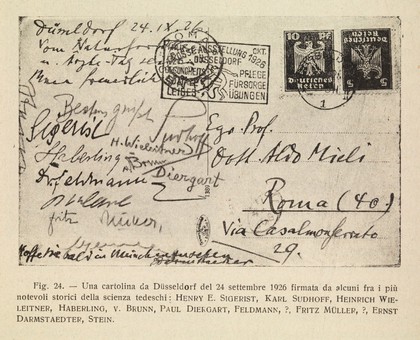 Düsseldorf 24.IX.26
Vom Naturforscher
u. Ärzte-Tag
Beste Grüße
Sigerist Sudhoff
H. Wieleitner
Haberling v. Brunn
Dr. Feldmann Diergart
fritz Müller,
Darmstaedter
AUSSTELLUNG 1926
OKT.
DÜSSELDORF
PFLEGE
FÜRSORGE
LEIBES-
ÜBUNGEN
10
Deutsches
Reich
5
Deutsches
Reich
1
Egr. Prof.
Dott. Aldo Mieli
Roma (40)
Via Casalmonferrato
29.
Fig. 24. — Una cartolina da Düsseldorf del 24 settembre 1926 firmata da alcuni fra i più
notevoli storici della scienza tedeschi: HENRY E. SIGERIST, KARL SUDHOFF, HEINRICH WIE-
LEITNER, HABERLING, v. BRUNN, PAUL DIERGART, FELDMANN, ?, FRITZ MÜLLER, ?, ERNST
DARMSTAEDTER, STEIN.